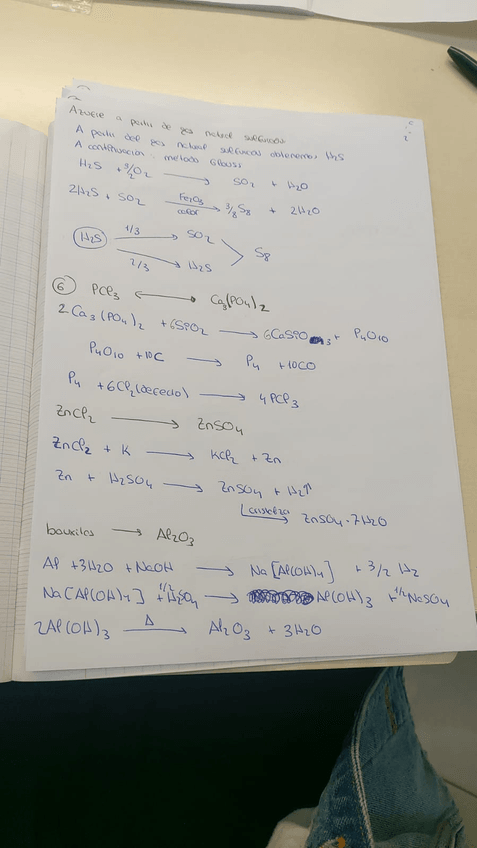 Azufre a partir de gas natural sulfuroso
A partir del gas natural sulfuroso obtenemos H₂S
A continuación método Clauss
H₂S + 3/2O₂ → SO₂ + H₂O
2H₂S + SO₂ Fe₂O₃ calor → 3/8 S₈ + 2H₂O
H₂S 1/3 → SO₂
2/3 → H₂S
S₈
⑥ PCl₃ ⟷ Ca₃(PO₄)₂
2Ca₃(PO₄)₂ + 6SiO₂ → 6CaSiO₃ + P₄O₁₀
P₄O₁₀ + 10C → P₄ + 10CO
P₄ + 6Cl₂ → 4PCl₃
ZnCl₂ → ZnSO₄
ZnCl₂ + K → KCl₂ + Zn
Zn + H₂SO₄ → ZnSO₄ + H₂↑
cristaliza → ZnSO₄·7H₂O
bauxitas → Al₂O₃
Al + 3H₂O + NaOH → Na[Al(OH)₄] + 3/2 H₂
Na[Al(OH)₄] + 1/2 H₂SO₄ → Al(OH)₃ + 1/2 NaSO₄
2Al(OH)₃ Δ → Al₂O₃ + 3H₂O